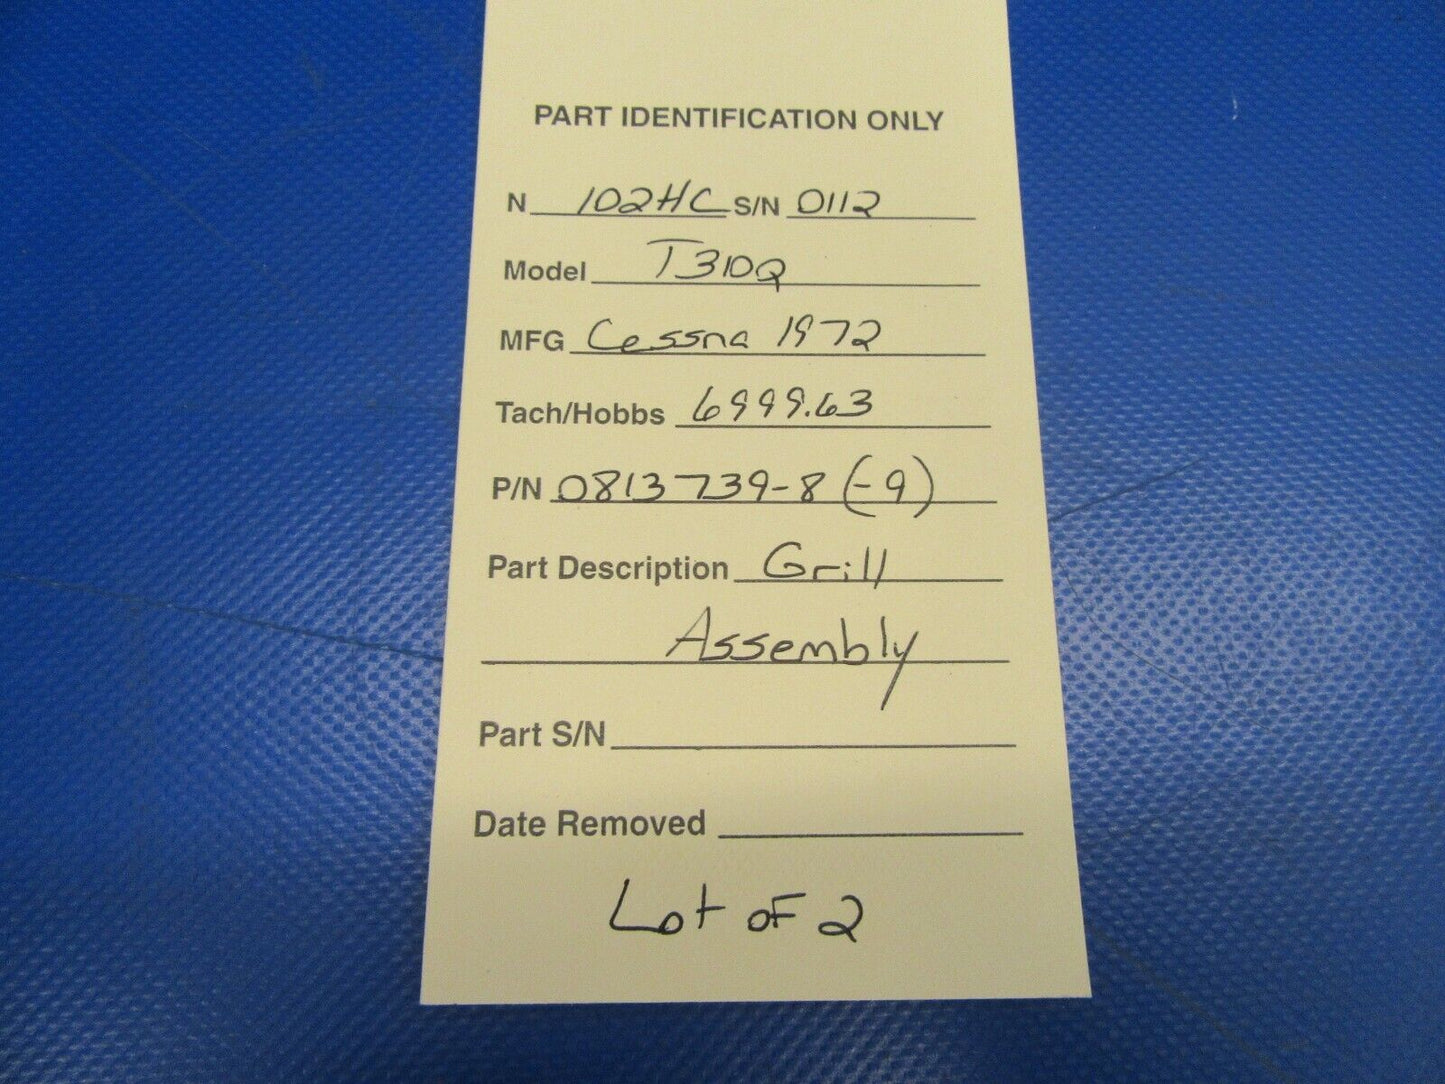 PART IDENTIFICATION ONLY
N 102HC S/N 0112
Model T310Q
MFG Cessna 1972
Tach/Hobbs 6999.63
P/N 0813739-8 (-9)
Part Description Grill
Assembly
Part S/N
Date Removed
Lot of 2